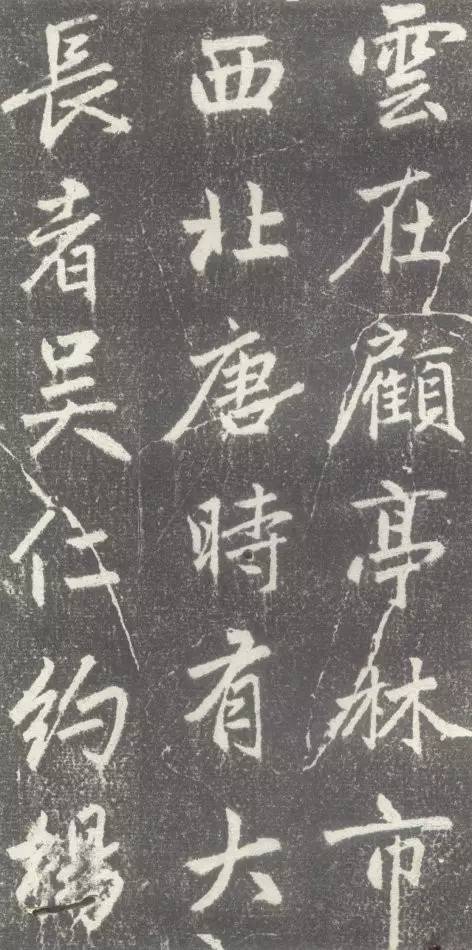 雲在顧亭林市
西北唐時有大
長者吴仁約